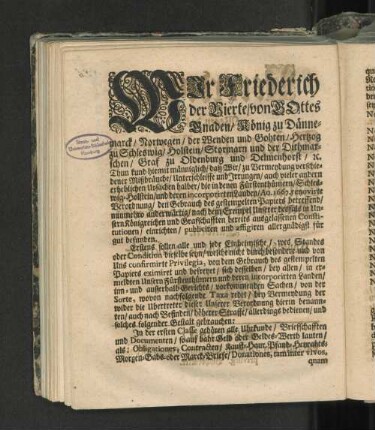 WIr Friederich
der Vierte/ von GOttes
Gnaden/ König zu Dänne-
marck/ Norwegen/ der Wenden und Gothen/ Hertzog
zu Schleswig/ Holstein/ Stormarn und der Dithmar-
schen/ Graf zu Oldenburg und Delmenhorst/ ꝛc.
Thun kund hiemit männiglich/ daß Wir/ zu Vermeydung verschie-
dener Mißbräuche/ Unterschleiffe und Irrungen/ auch vieler andern
erheblichen Ursachen halber/ die in denen Fürstenthümern/ Schles-
wig-Holstein/ und deren incorporirten Landen/ Ao. 1687. renovirte
Verordnung/ der Gebrauch des gestempelten Papiers betreffend/
nunmehro anderwärtig/ nach dem Exempel
Königreichen und Grafschafften bereits ausgelassenen Consti-
tutionen/ einrichten/ publiciren und affigiren allergnädigst für
gut befunden.
Erstens sollen alle und jede Einheimische/ wes Standes
oder Condition dieselbe seyn/ welche nicht durch besondere und von
Uns confirmirte Privilegia, von dem Gebrauch des gestempelten
Papiers eximiret und befreyet/ sich desselben/ bey allen/ in er-
meldten Unsern Fürstenthümern und deren incorporirten Landen/
in- und ausserhalb Gerichts/ vorkommenden Sachen/ von der
Sorte, wovon nachfolgende Taxa redet/ bey Vermeydung der
wider die Ubertreter dieser Unserer Verordnung hierin benann-
ten/ auch nach Befinden/ höherer Straffe/ allerdings bedienen/ und
solches folgender Gestalt gebrauchen:
In der ersten Classe gehören alle Uhrkunde/ Brieffschafften
und Documenten/ so auf baar Geld oder Geldes-Werth lauten/
als: Obligationes, Contracten/ Kauff-Heur-Pfand-Heyraths-
Morgen-Gabs- oder March-Briefe/ Donationes, tam inter vivos,
quam